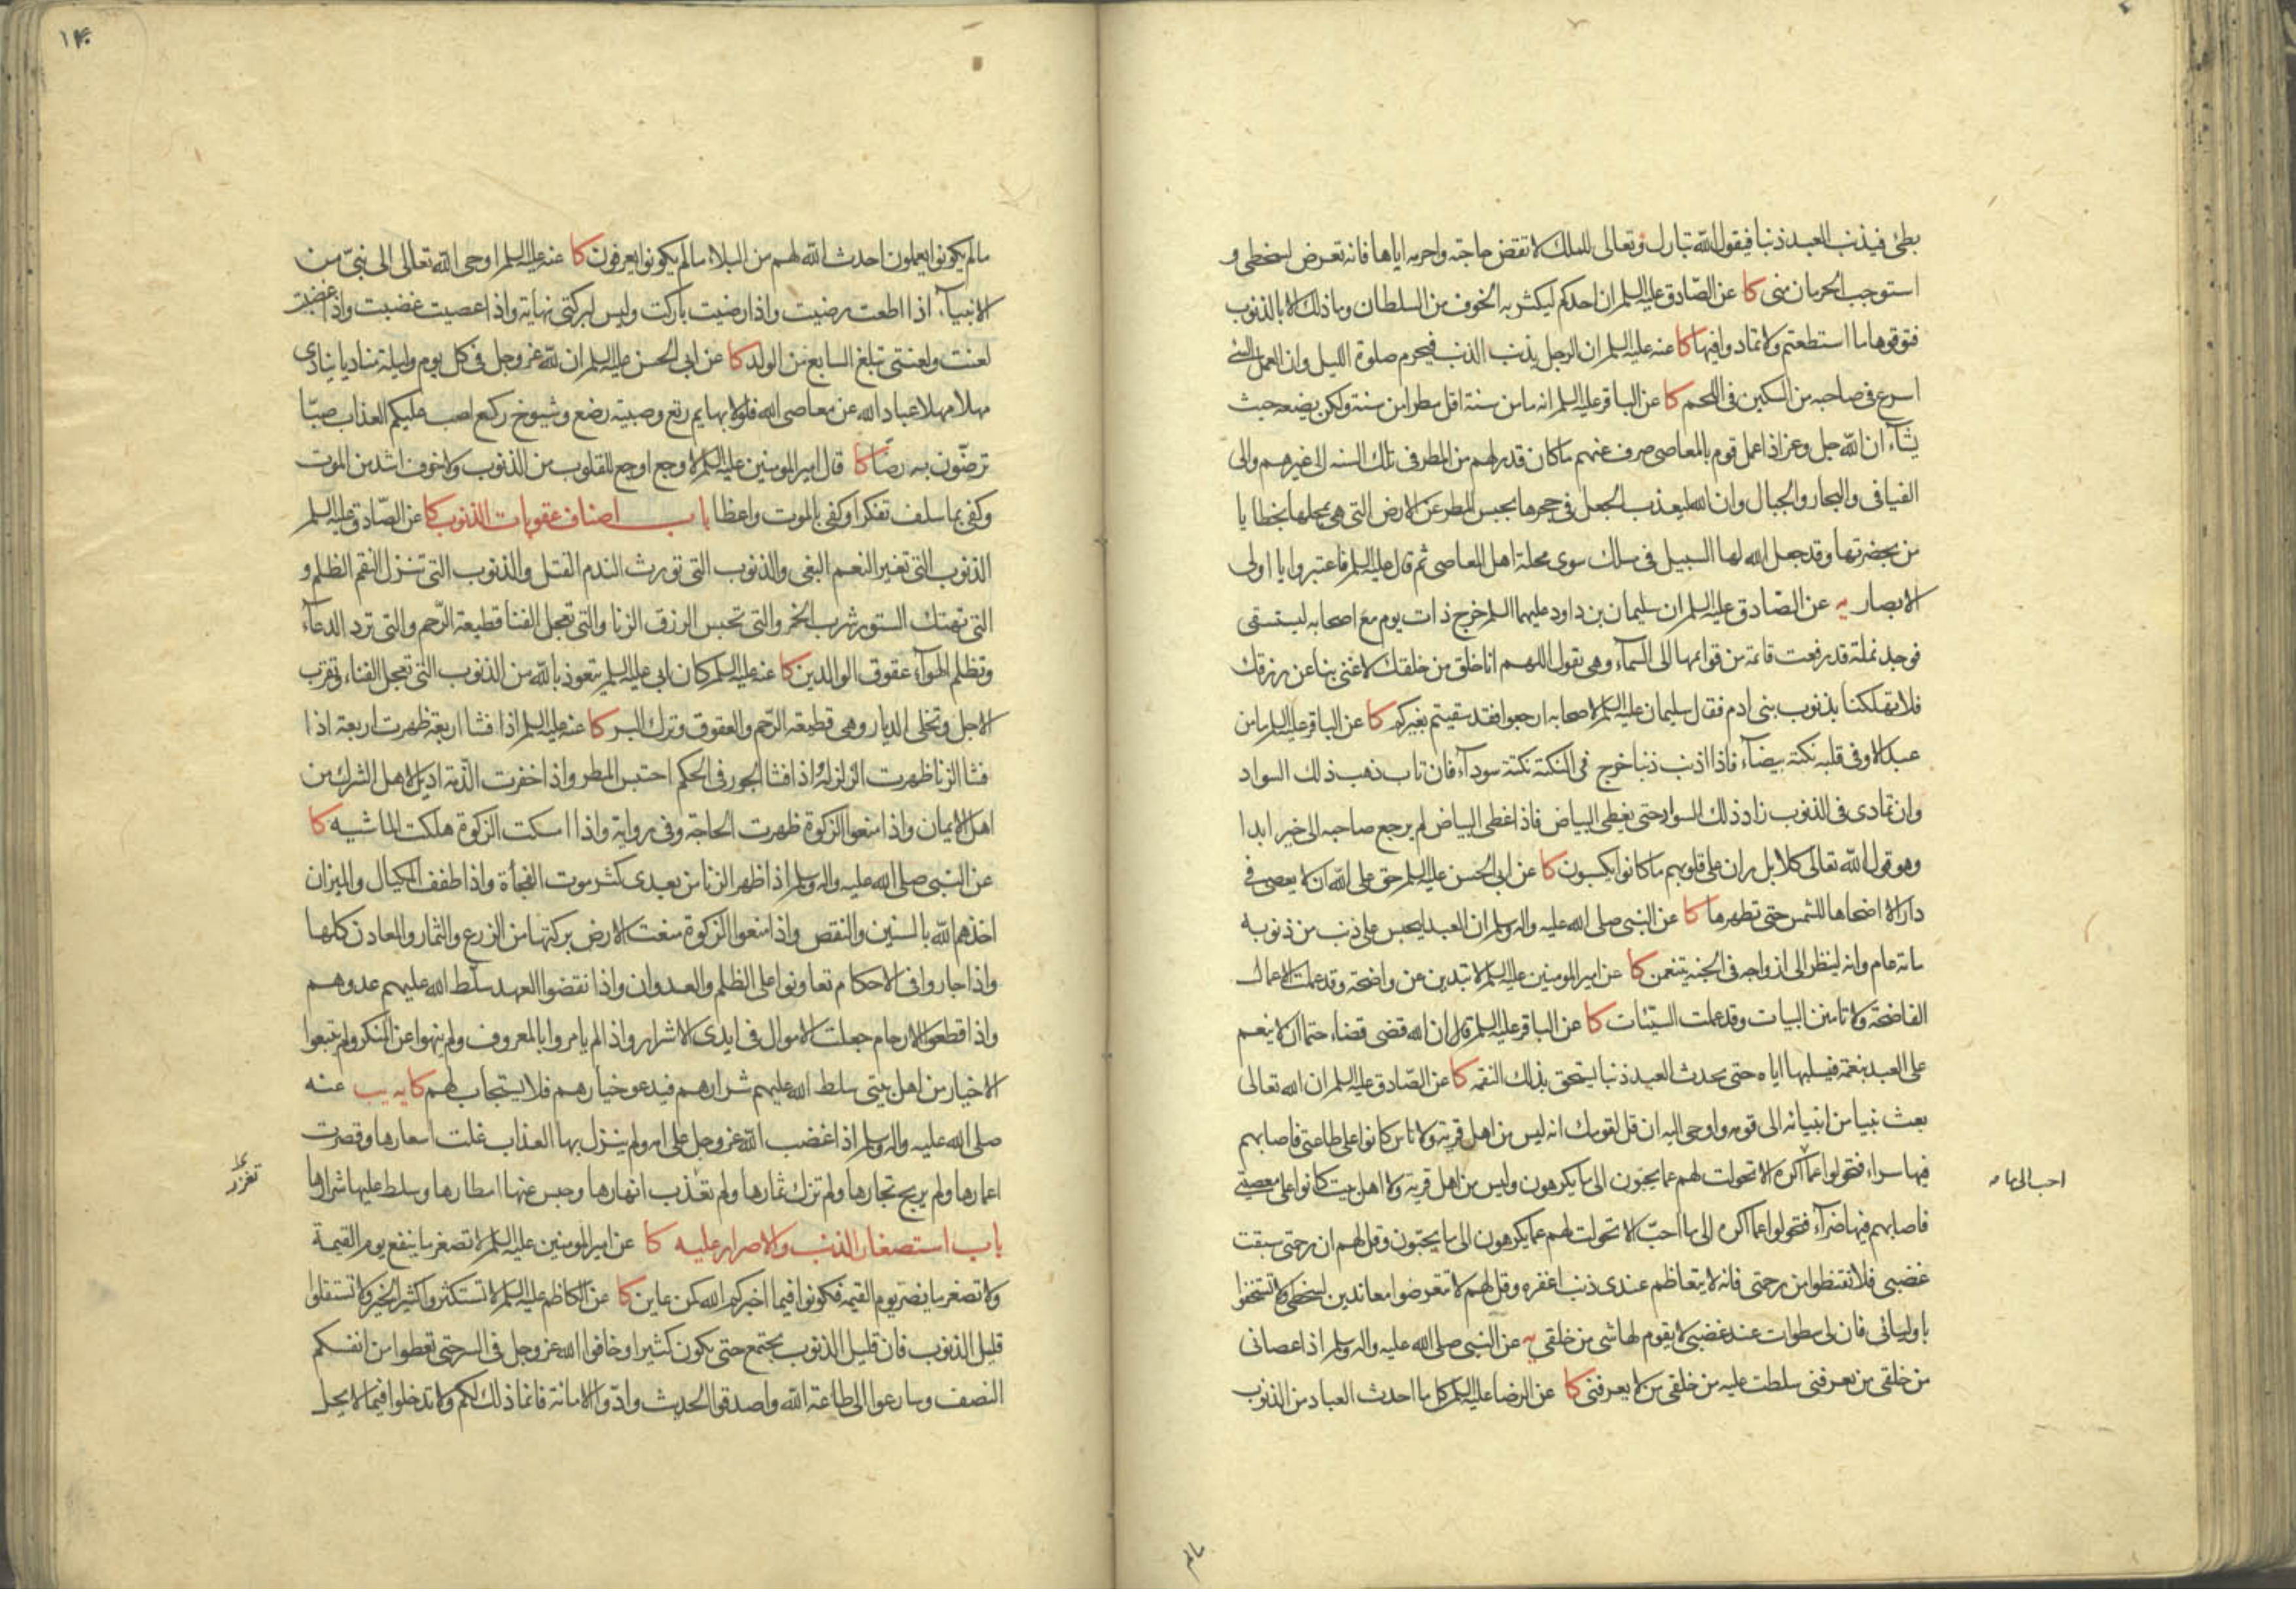 بطئ فيذنب العبد ذنبا فيقول الله تبارك وتعالى للملك لا تقض حاجته واحرمه اياها فانه تعرض لسخطى و
استوجب الحرمان منى كا عن الصّادق عليه السلم ان احدكم ليكثر به الخوف من السلطان وما ذلك الا بالذنوب
فتوقوها ما استطعتم ولا تمادوا فيها كا عنه عليه السلم ان الرجل يذنب الذنب فيحرم صلوة الليل وان العمل السئ
اسرع فى صاحبه من السكين فى اللحم كا عن الباقر عليه السلم انه ما من سنة اقل مطرا من سنة ولكن يضعه حيث
يشآء ان الله جل وعز اذا عمل قوم بالمعاصى صرف عنهم ما كان قدر لهم من المطر فى تلك السنه الى غيرهم والى
الفيافى والبحار والجبال وان الله ليعذب الجعل فى جحرها بحبس المطر عن الارض التى هى بمحلها بخطايا
من بحضرتها وقد جعل الله لها السبيل فى مسلك سوى محلة اهل المعاصى ثم قال عليه السلم فاعتبروا يا اولى
الابصار يه عن الصّادق عليه السلم ان سليمان بن داود عليهما السلم خرج ذات يوم مع اصحابه ليستسقى
فوجد نملة قد رفعت قائمة من قوائمها الى السمآء وهى تقول اللهم انا خلق من خلقك لا غنى بنا عن رزقك
فلا تهلكنا بذنوب بنى ادم فقال سليمان عليه السلم لاصحابه ارجعوا فقد سقيتم بغيركم كا عن الباقر عليه السلم ما من
عبد الا وفى قلبه نكتة بيضآء فاذا اذنب ذنبا خرج فى النكتة نكتة سودآء فان تاب ذهب ذلك السواد
وان تمادى فى الذنوب زاد ذلك السواد حتى يغطى البياض فاذا غطى البياض لم يرجع صاحبه الى خير ابدا
وهو قول الله تعالى كلا بل ران على قلوبهم ما كانوا يكسبون كا عن ابى الحسن عليه السلم حق على الله ان لا يعصى فى
دار الا اضحاها للشمس حتى تطهرها كا عن النبى صلى الله عليه واله وسلم ان العبد ليحبس على ذنب من ذنوبه
مائة عام وانه لينظر الى ازواجه فى الجنة يتنعمن كا عن امير المومنين عليه السلم لا تبدين عن واضحة وقد عملت الاعمال
الفاضحة ولا تامنن البيات وقد عملت السيّئات كا عن الباقر عليه السلم قال ان الله قضى قضاء حتما ان لا ينعم
على العبد بنعمة فيسلبها اياه حتى يحدث العبد ذنبا يستحق بذلك النقمه كا عن الصّادق عليه السلم ان الله تعالى
بعث نبيا من انبيائه الى قومه واوحى اليه ان قل لقومك انه ليس من اهل قرية ولا ناس كانوا على طاعتى فاصابهم
فيها سراء فتحولوا عما اكره الا تحولت لهم عما يحبون الى ما يكرهون وليس من اهل قرية ولا اهل بيت كانوا على معصيتى
احب الى ما
فاصابهم فيها ضرآء فتحولوا عما اكره الى ما احبّ الا تحولت لهم عما يكرهون الى ما يحبّون وقل لهم ان رحمتى سبقت
غضبى فلا تقنطوا من رحمتى فانه لا يتعاظم عندى ذنب اغفره وقل لهم لا تتعرضوا معاندين لسخطى ولا تستخفوا
باوليائى فان لى سطوات عند غضبى لا يقوم لها شى من خلقى يه عن النبى صلى الله عليه واله وسلم اذا عصانى
من خلقى من يعرفنى سلطت عليه من خلقى من لا يعرفنى كا عن الرضا عليه السلم كل ما احدث العباد من الذنوب
مالم
١٣٠
مالم يكونوا يعملون احدث الله لهم من البلاء مالم يكونوا يعرفون كا عنه عليه السلم اوحى الله تعالى الى نبىّ من
الانبيآء اذا اطعت رضيت واذا رضيت باركت وليس لبركتى نهاية واذا عصيت غضبت واذا غضبت
لعنت ولعنتى تبلغ السابع من الولد كا عن ابى الحسن عليه السلم ان لله عز وجل فى كل يوم وليلة مناديا ينادى
مهلا مهلا عباد الله عن معاصى الله فلولا بهايم رتع وصبية رضع وشيوخ ركع لصب عليكم العذاب صبّا
ترضّون به رضّا كا قال امير المومنين عليه السلم لا وجع اوجع للقلوب من الذنوب ولا خوف اشد من الموت
وكفى بما سلف تفكرا وكفى بالموت واعظا باب اصناف عقوبات الذنوب كا عن الصّادق عليه السلم
الذنوب التى تغير النعم البغى والذنوب التى تورث الندم القتل والذنوب التى تنزل النقم الظلم و
التى تهتك الستور شرب الخمر والتى تحبس الرزق الزنا والتى تعجل الفنآ قطيعة الرّحم والتى ترد الدعآء
وتظلم الهوآء عقوق الوالدين كا عنه عليه السلم كان ابى عليه السلم يتعوذ بالله من الذنوب التى تعجل الفناء وتقرب
الاجل وتخلى الديار وهى قطيعة الرّحم والعقوق وترك البر كا عنه عليه السلم اذا فشا اربعة ظهرت اربعة اذا
فشا الزنا ظهرت الزلزلة واذا فشا الجور فى الحكم احتبس المطر واذا خفرت الذّمة اديل لاهل الشرك من
اهل الايمان واذا منعوا الزكوة ظهرت الحاجة وفى رواية واذا امسكت الزكوة هلكت الماشيه كا
عن النبى صلى الله عليه واله وسلم اذا ظهر الزنا من بعدى كثر موت الفجأة واذا طفف المكيال والميزان
اخذهم الله بالسنين والنقص واذا منعوا الزكوة منعت الارض بركتها من الزرع والثمار والمعادن كلها
واذا جاروا فى الاحكام تعاونوا على الظلم والعدوان واذا نقضوا العهد سلّط الله عليهم عدوهم
واذا قطعوا الارحام جعلت الاموال فى ايدى الاشرار واذا لم يامروا بالمعروف ولم ينهوا عن المنكر ولم يتبعوا
الاخيار من اهل بيتى سلط الله عليهم شرارهم فيدعو خيارهم فلا يستجاب لهم كا يه يب عنه
صلى الله عليه واله وسلم اذا غضب الله عز وجل على امه ولم ينزل بها العذاب غلت اسعارها وقصرت
اعمارها ولم يربح تجارها ولم تزك ثمارها ولم تعذب انهارها وحبس عنها امطارها وسلط عليها شرارها
تغزر
باب استصغار الذنب والاصرار عليه كا عن امير المومنين عليه السلم لا تصغر ما ينفع يوم القيمة
ولا تصغر ما يضر يوم القيمه فكونوا فيما اخبركم الله كمن عاين كا عن الكاظم عليه السلم لا تستكثروا كثير الخير ولا تستقلوا
قليل الذنوب فان قليل الذنوب يجتمع حتى يكون كثيرا وخافوا الله عز وجل فى السر حتى تعطوا من انفسكم
النصف وسارعوا الى طاعة الله واصدقوا الحديث وادّوا الامانة فانما ذلك لكم ولا تدخلوا فيما لا يحل